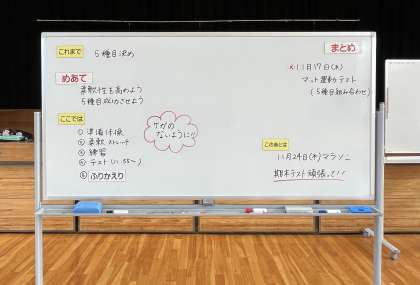 これまで
5種目決め
めあて
柔軟性を高めよう
5種目成功させよう
ここでは
① 準備体操
② 柔軟ストレッチ
③ 練習
④ テスト(11:55〜)
⑤ ふりかえり
ケガの
ないように!!
まとめ
※11月17日(木)
マット運動テスト
(5種目組み合わせ)
このあとは
11月24日(木)マラソン
期末テスト頑張って!!